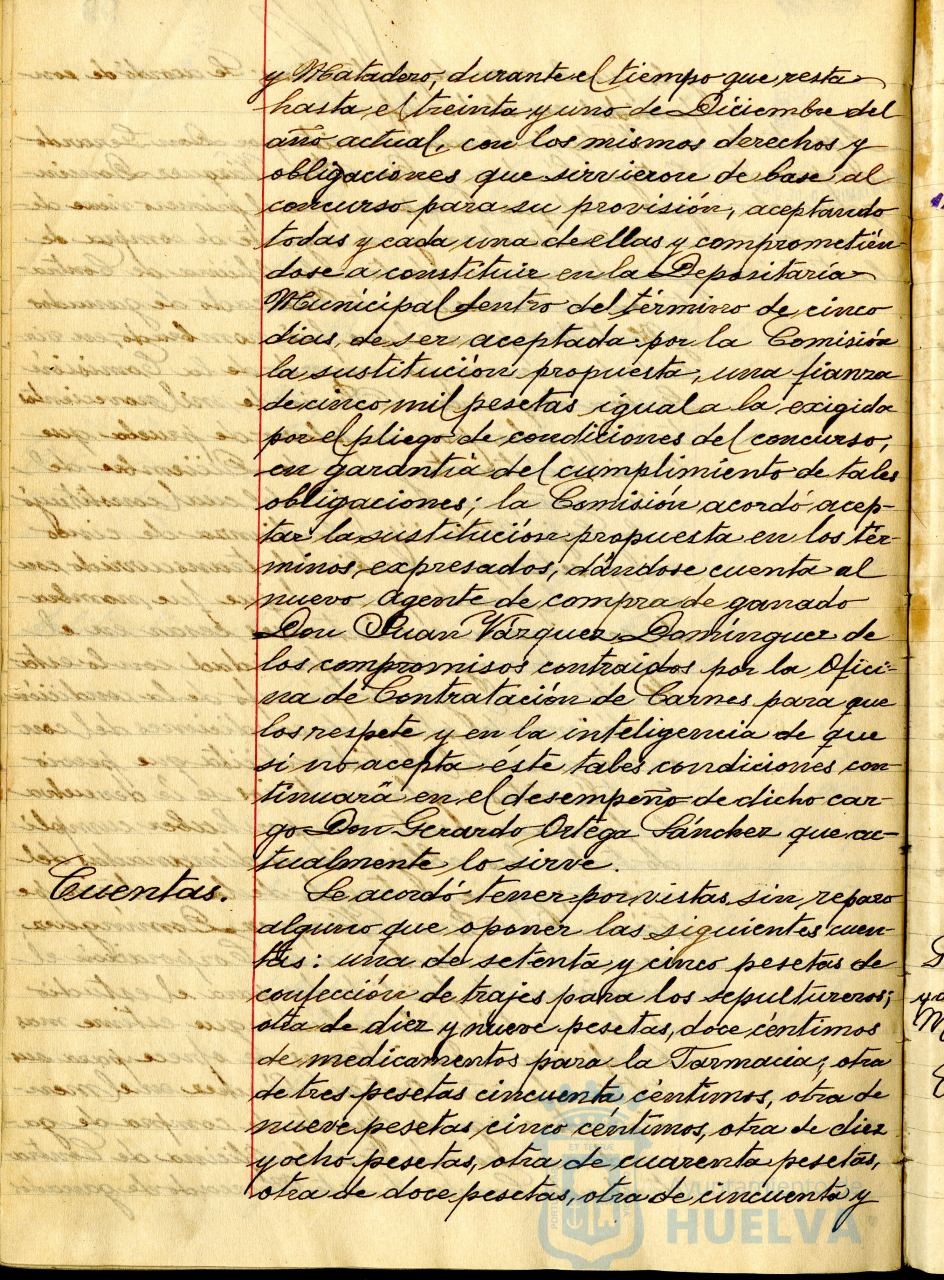 y Matadero, durante el tiempo que resta
hasta el treinta y uno de Diciembre del
año actual, con los mismos derechos y
obligaciones que sirvieron de base al
concurso para su provisión, aceptando
todas y cada una de ellas y comprometién-
dose a constituir en la Depositaría
Municipal dentro del término de cinco
dias, de ser aceptada por la Comisión
la sustitución propuesta, una fianza
de cinco mil pesetas igual a la exigida
por el pliego de condiciones del concurso,
en garantia del cumplimiento de tales
obligaciones; la Comisión acordó acep-
tar la sustitución propuesta en los tér-
minos expresados, dándose cuenta al
nuevo Agente de compra de ganado
Don Juan Vázquez Domínguez de
los compromisos contraidos por la Ofici-
na de Contratación de Carnes para que
los respete y en la inteligencia de que
si no acepta éste tales condiciones con-
tinuará en el desempeño de dicho car-
go Don Gerardo Ortega Sánchez que ac-
tualmente lo sirve.
Cuentas. Se acordó tener por vistas, sin reparo
alguno que oponer las siguientes cuen-
tas: una de setenta y cinco pesetas de
confección de trajes para los sepultureros;
otra de diez y nueve pesetas, doce céntimos
de medicamentos para la Farmacia; otra
de tres pesetas cincuenta céntimos, otra de
nueve pesetas cinco céntimos, otra de diez
y ocho pesetas, otra de cuarenta pesetas,
otra de doce pesetas, otra de cincuenta y
Ayuntamiento de
HUELVA